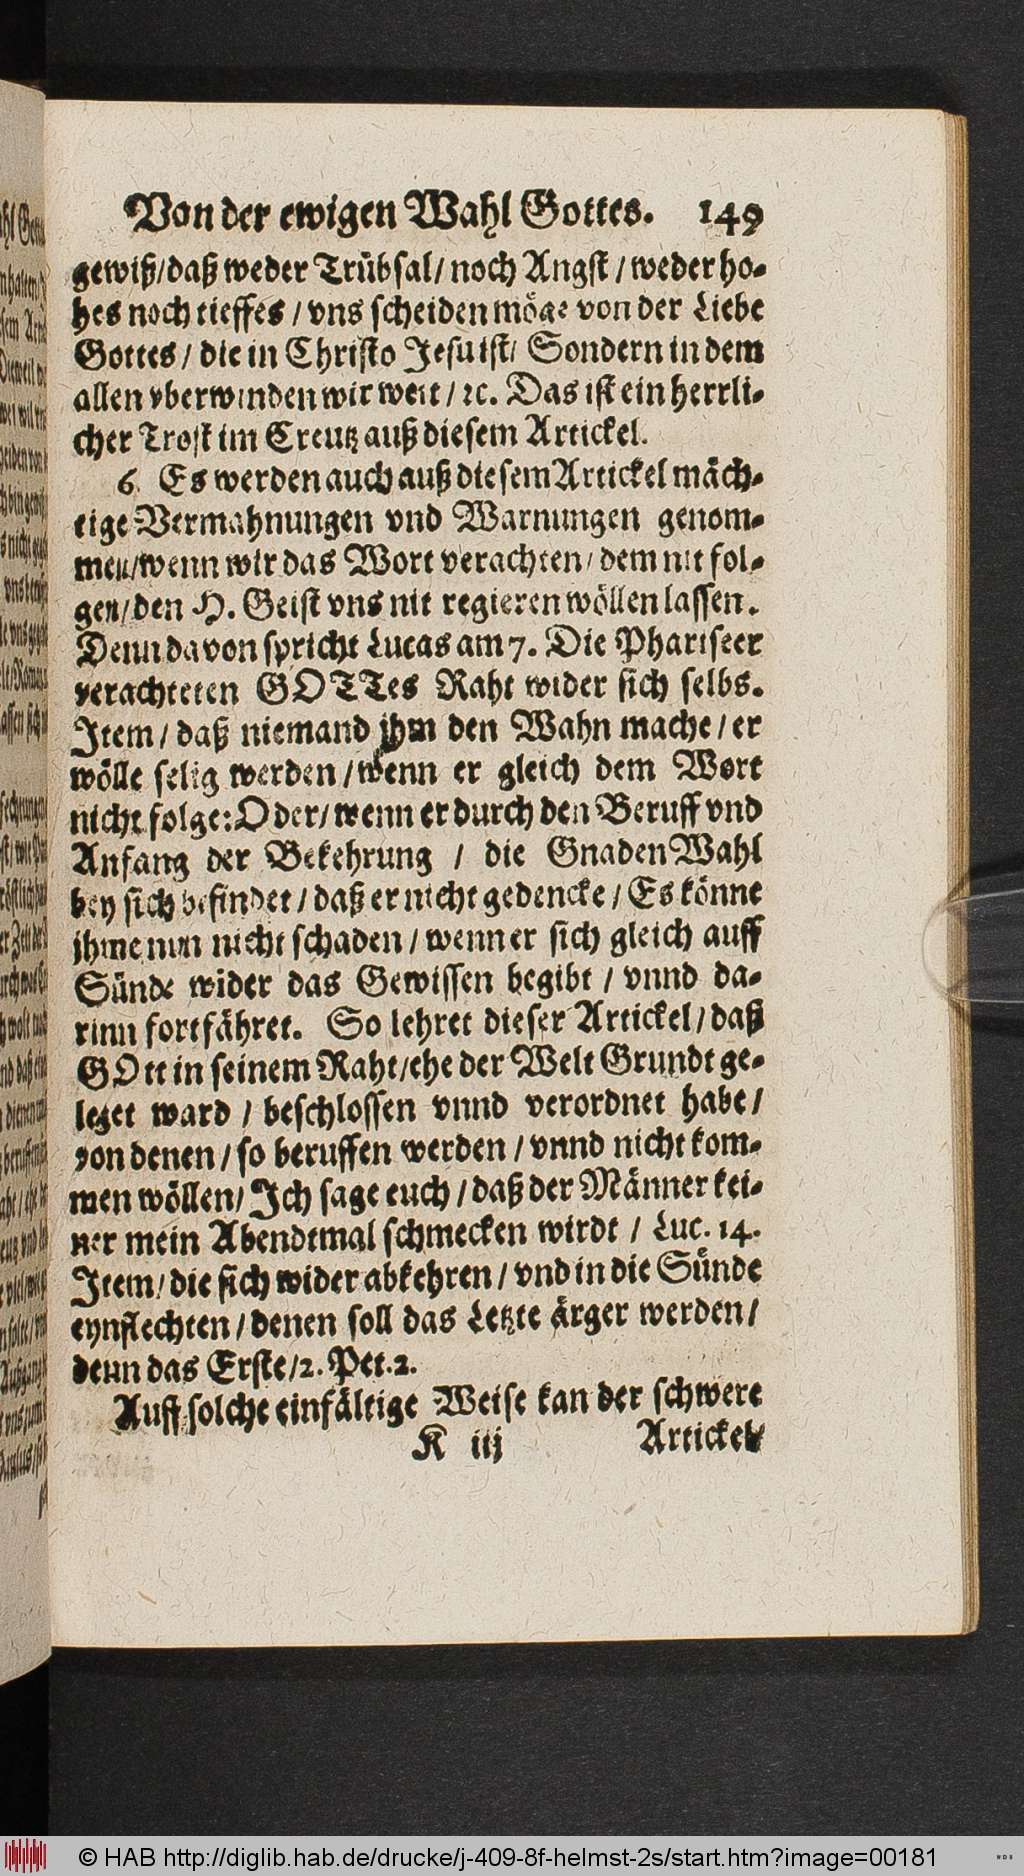 Von der ewigen Wahl Gottes. 149
gewiß/daß weder Trübsal/noch Angst/weder ho-
hes noch tieffes/vns scheiden möge von der Liebe
Gottes/die in Christo Jesu ist/Sondern in dem
allen vberwinden wir weit/ꝛc. Das ist ein herrli-
cher Trost im Creutz auß diesem Artickel.
6. Es werden auch auß diesem Artickel mäch-
tige Vermahnungen vnd Warnungen genom-
men/wenn wir das Wort verachten/dem nit fol-
gen/den H. Geist vns nit regieren wöllen lassen.
Denn davon spricht Lucas am 7. Die Phariseer
verachteten GOTTes Raht wider sich selbs.
Item/daß niemand jhm den Wahn mache/er
wölle selig werden/wenn er gleich dem Wort
nicht folge: Oder/wenn er durch den Beruff vnd
Anfang der Bekehrung/die Gnaden Wahl
bey sich befindet/daß er nicht gedencke/Es könne
jhme nun nicht schaden/wenn er sich gleich auff
Sünde wider das Gewissen begibt/vnnd da-
rinn fortfähret. So lehret dieser Artickel/daß
GOtt in seinem Raht/ehe der Welt Grundt ge-
leget ward/beschlossen vnnd verordnet habe/
von denen/so beruffen werden/vnnd nicht kom-
men wöllen/Ich sage euch/daß der Männer kei-
ner mein Abendtmal schmecken wirdt/Luc. 14.
Item/die sich wider abkehren/vnd in die Sünde
eynflechten/denen soll das Letzte ärger werden/
denn das Erste/2. Pet. 2.
Auff solche einfältige Weise kan der schwere
K iij Artickel
© HAB http://diglib.hab.de/drucke/j-409-8f-helmst-2s/start.htm?image=00181